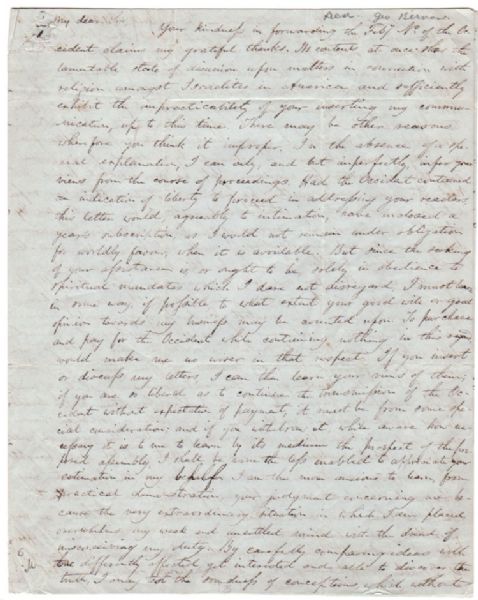 My dear Sir
Your kindness in forwarding the Feby No of the Oc-
cident claims my grateful thanks. Its contents at once shew the
lamentable state of dissension upon matters in connection with
religion amongst Israelites in America and sufficiently
exhibit the impracticability of your inserting my commu-
nication, up to this time. There may be other reasons
wherefore you think it improper. In the absence of a spe-
cial explanation, I can only, and but imperfectly, infer your
views from the course of proceedings. Had the Occident contained
an intimation of liberty to proceed in addressing your readers
this letter would agreeably to intimation, have inclosed a
years subscription, as I would not remain under obligation
for worldly favors, when it is available. But since the seeking
of your assistance is or ought to be solely in obedience to
spiritual mandates which I dare not disregard, I must learn
in some way, if possible to what extent your good will or good
opinion towards my business may be counted upon. To purchase
and pay for the Occident while continuing nothing in this
would make me no wiser in that respect. If you insert
or discuss my letters, I can then learn your views of them;
if you are so liberal as to continue the transmission of the Oc-
cident without expectation of payment, it must be from some spe-
cial consideration; and if you withdraw it while aware how ne-
cessary it is to me to learn by its medium the prospect of the pro-
posed assembly, I shall be none the less enabled to appreciate your
estimation in my behalf. I am the more anxious to learn from
practical demonstration your judgment concerning me be-
cause the very extraordinary situation in which I am placed
overwhelms my weak and unsettled mind with the dread of
my duty. By carefully comparing ideas with
one differently affected yet intended and able to discover the
truth, I may the soundness of conceptions, which without